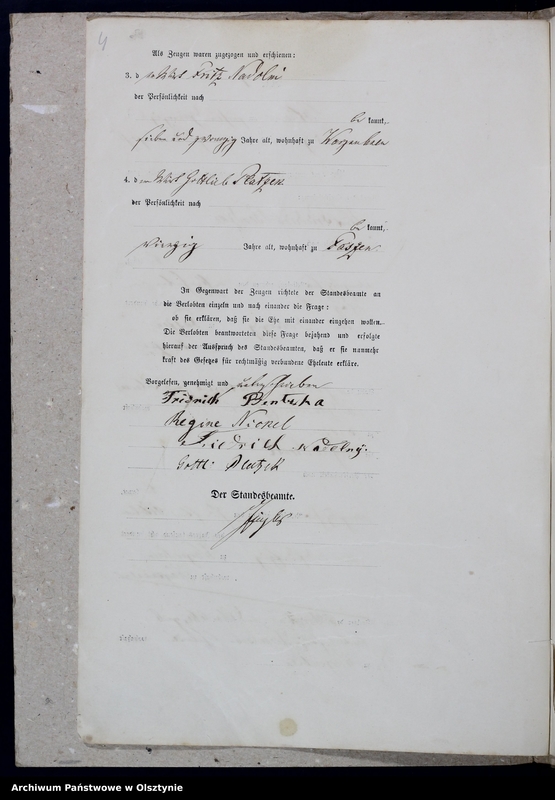 4
Als Zeugen waren zugezogen und erschienen:
3. d Fritz Nadolni
der Persönlichkeit nach
be kannt,
sieben und zwanzig Jahre alt, wohnhaft zu
4. d Gottlieb
der Persönlichkeit nach
be kannt,
vierzig Jahre alt, wohnhaft zu
In Gegenwart der Zeugen richtete der Standesbeamte an
die Verlobten einzeln und nach einander die Frage:
ob sie erklären, daß sie die Ehe mit einander eingehen wollen.
Die Verlobten beantworteten diese Frage bejahend und erfolgte
hierauf der Ausspruch des Standesbeamten, daß er sie nunmehr
kraft des Gesetzes für rechtmäßig verbundene Eheleute erkläre.
Vorgelesen, genehmigt und unterschrieben
Fridrich
Regine Nickel
Friedrich Nadolny.
Gottl:
Der Standesbeamte.
Archiwum Państwowe w Olsztynie